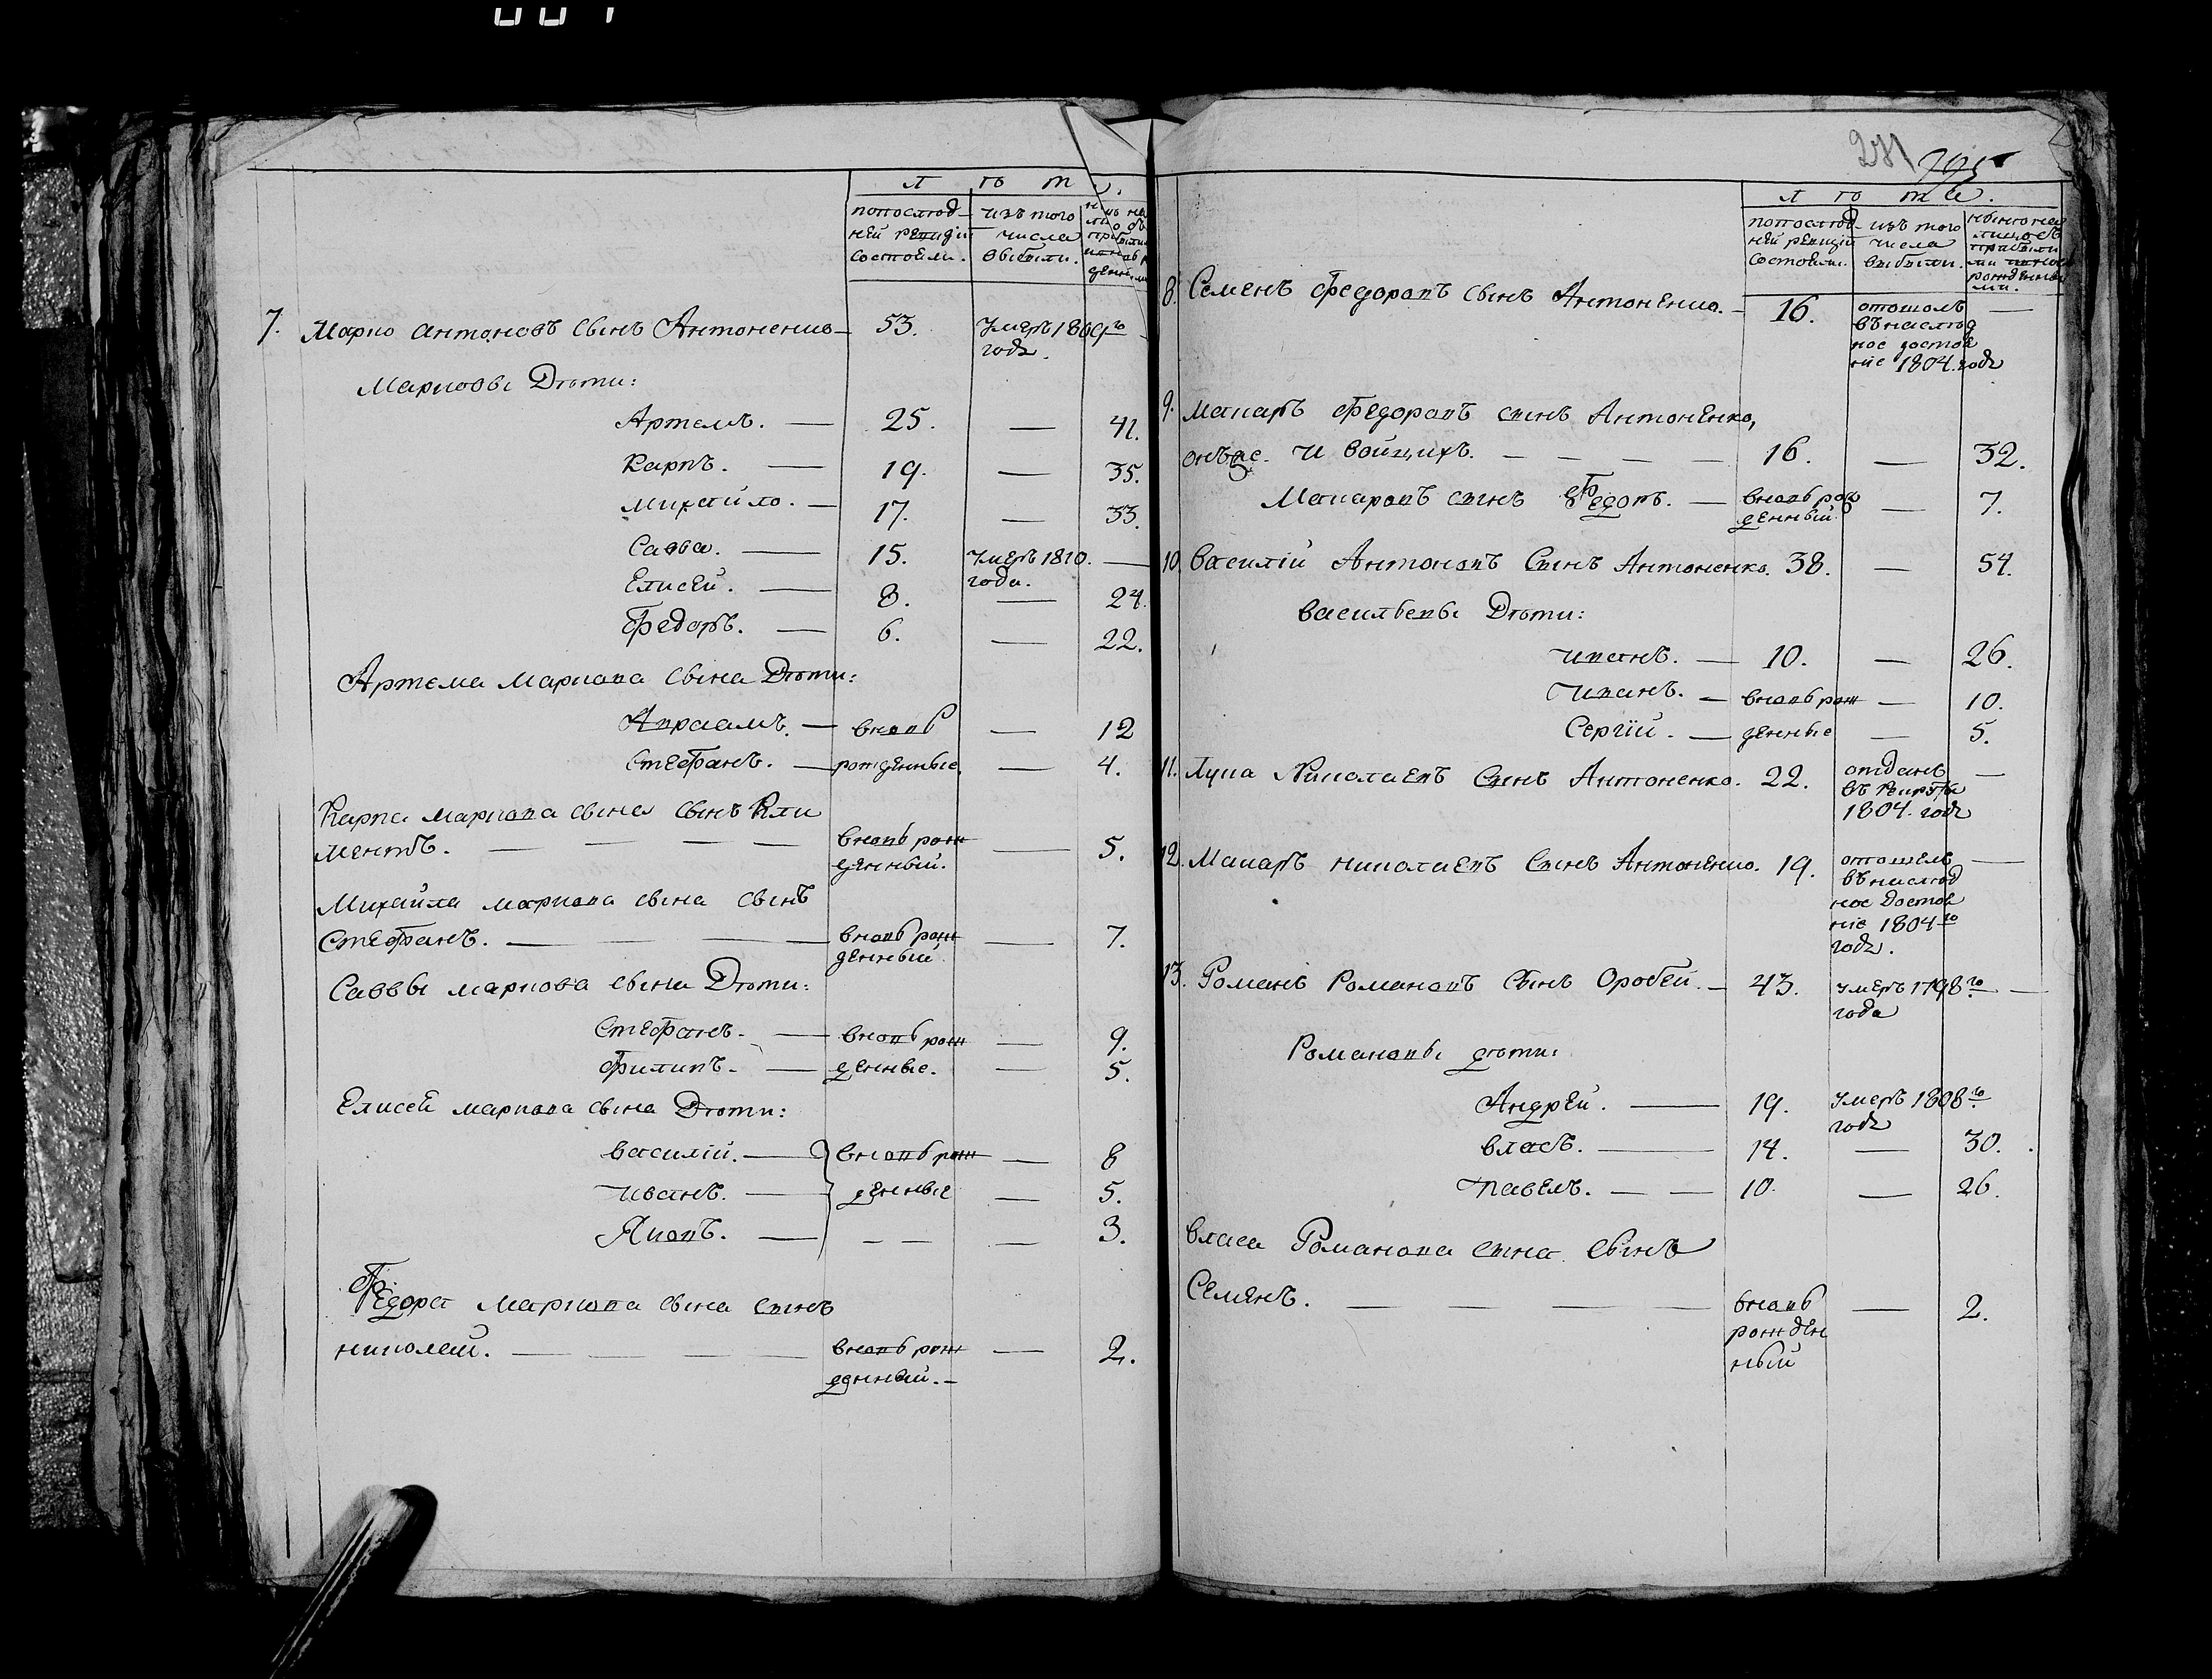 лѣта.
попослѣд- изъ того
ней ревизіи числа
состояли. выбыли.
7. Марко Антоновъ сынъ Антоненко — 53. умеръ 1809го
года.
Марковы Дѣти:
Артемъ. — 25. — 41.
Карпъ. — 19. — 35.
Михайло. — 17. — 33.
Савва. — 15. умеръ 1810. —
года.
Елисей. — 8. — 24.
Федоръ. — 6. — 22.
Артема Маркова сына Дѣти:
Авраамъ. — вновь — 12
Стефанъ. — рожденные. — 4.
Карпа Маркова сына сынъ Кли
ментъ. — — — — вновь рож — 5.
денный.
Михайла Маркова сына сынъ
Стефанъ. — — — — вновь рож — 7.
денный
Саввы Маркова сына Дѣти:
Стефанъ. — вновь рож — 9.
Филипъ. — денные. — 5.
Елисея Маркова сына Дѣти:
Василій. — вновь рож — 8
Иванъ. — денные — 5.
Яковъ. — — — — 3.
Федора Маркова сына сынъ
Николай. — — — — вновь рож — 2.
денный. —
281
395
лѣта.
попослѣд- изъ того нынѣ на
ней ревизіи числа лицо съ
состояли. выбыли. прибыли
ми и вновь
рожденны
ми.
8. Семенъ Федоровъ сынъ Антоненко. — 16. отошолъ —
въ наслѣд
ное достоя
ніе 1804. года
9. Макаръ Федоровъ сынъ Антоненко,
онъ же и Войцихъ. — — — — 16. — 32.
Макаровъ сынъ Федоръ. — вновь рож — 7.
денный
10. Василій Антоновъ Сынъ Антоненко. 38. — 54.
Васильевы Дѣти:
Иванъ. — 10. — 26.
Иванъ. — вновь рож — 10.
Сергій. — денные — 5.
11. Лука Николаевъ Сынъ Антоненко. 22. отданъ —
въ рекруты
1804. года
12. Макаръ Николаевъ Сынъ Антоненко. 19. отошелъ —
въ наслѣд
ное достоя
ніе 1804го
года.
13. Романъ Романовъ Сынъ Оробей. — 43. умеръ 1798го —
года
Романовы дѣти:
Андрей. — 19. умеръ 1808го
года
Власъ. — 14. — 30.
Павелъ. — — 10. — 26.
Власа Романова сына Сынъ
Семенъ. — — — — вновь — 2.
рожден
ный